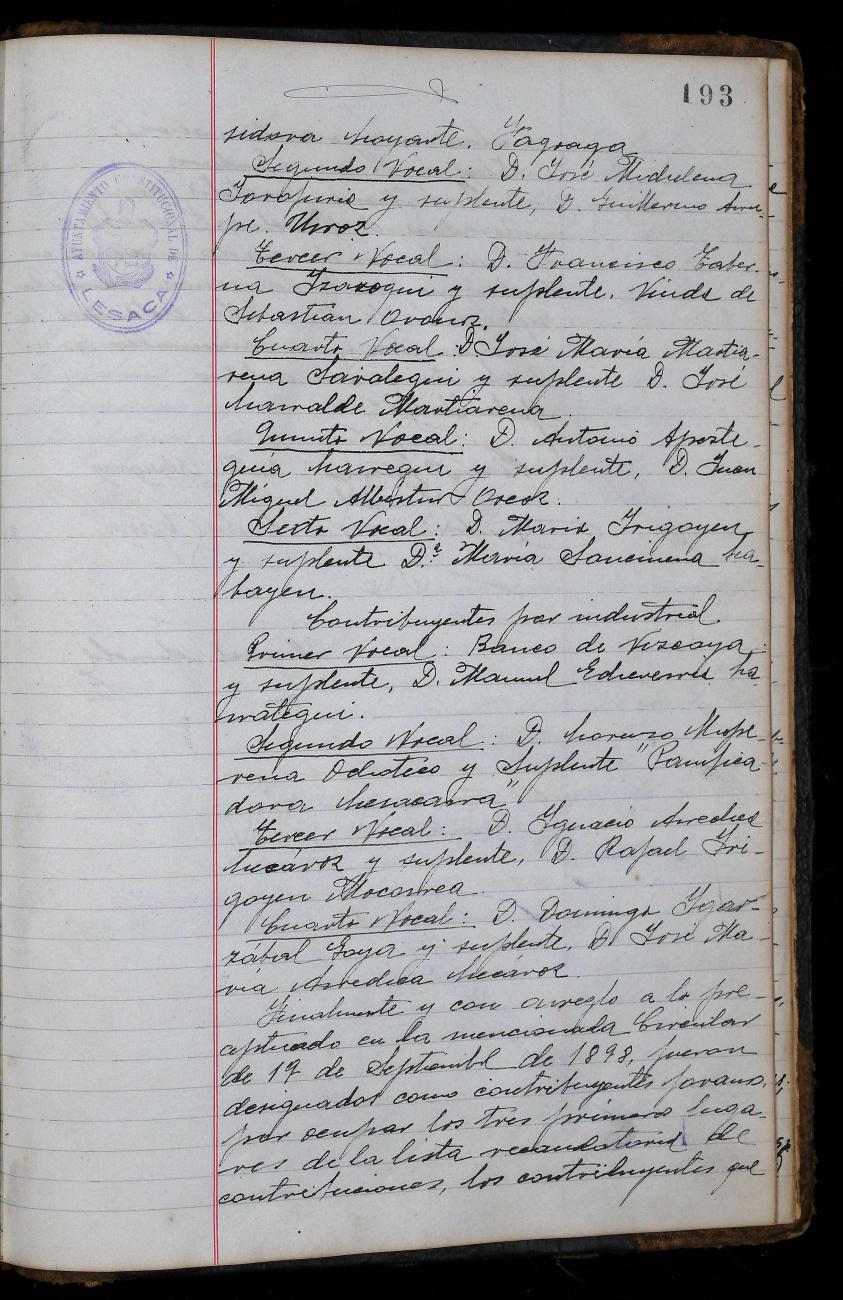 193
AYUNTAMIENTO CONSTITUCIONAL DE
LESACA
sidora Loyarte. Yagoaga
Segundo Vocal: D. José Midulena
y suplente, D. Guillermo Arru-
pe. Urroz.
Tercer Vocal: D. Francisco Taber-
na y suplente. Vinda de
Sebastian
Cuarto Vocal D José María Martia-
rena Saralegui y suplente D. José
Larralde Martiarena.
Quinto Vocal: D. Antonio Apeste-
guia Larregui y suplente, D. Juan
Miguel
Sexto Vocal: D. María Irigoyen
y suplente D.ª María Sancinena Sa-
bayen.
Contribuyentes por industrial
Primer Vocal: Banco de Vizcaya
y suplente, D. Manuel Echeverria La-
rrategui.
Segundo Vocal: D. Lorenzo
y Suplente "Panifica-
dora Lesacarra"
Tercer Vocal: D. Ignacio Arrechea
Lecároz y suplente, D. Rafael Iri-
goyen Mocorrea.
Cuarto Vocal: D. Domingo Igar-
zábal Goya y suplente, D José Ma-
ría Arrechea Lecároz.
Finalmente y con arreglo a lo pre-
ceptuado en la mencionada Circular
de 19 de Septiembre de 1898, fueron
designados como contribuyentes foranos,
por ocupar los tres primeros luga-
res de la lista recaudatoria de
contribuciones, los contribuyentes que